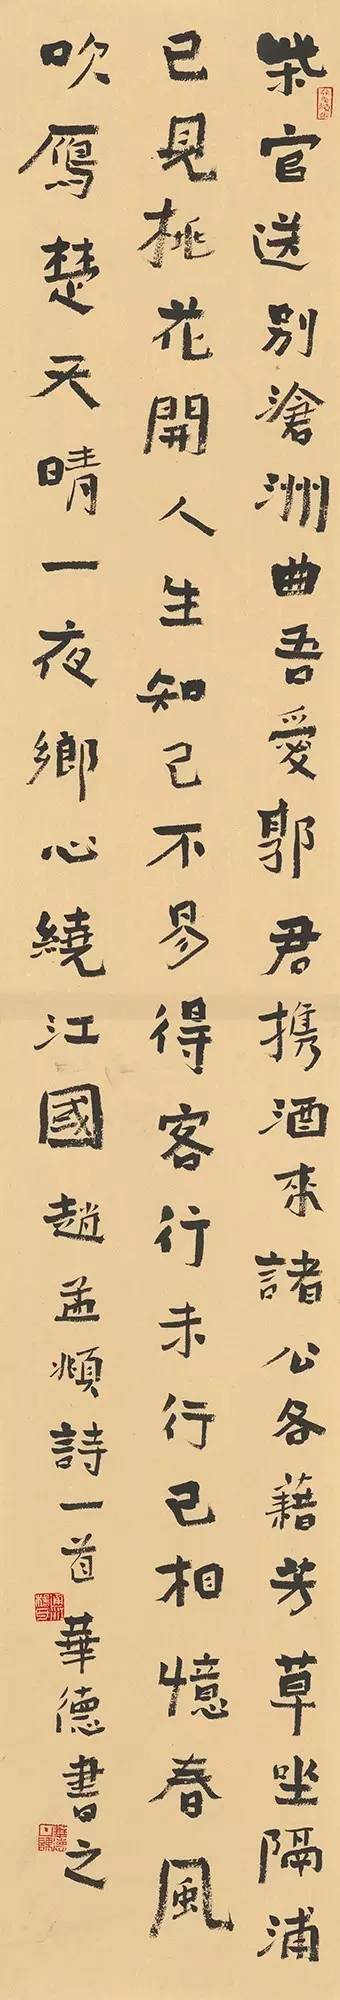 柴官送别滄洲曲吾愛郭君携酒來諸公各藉芳草坐隔浦
已見桃花開人生知己不易得客行未行已相憶春風
吹鴈楚天晴一夜鄉心繞江國趙孟頫詩一首華德書之